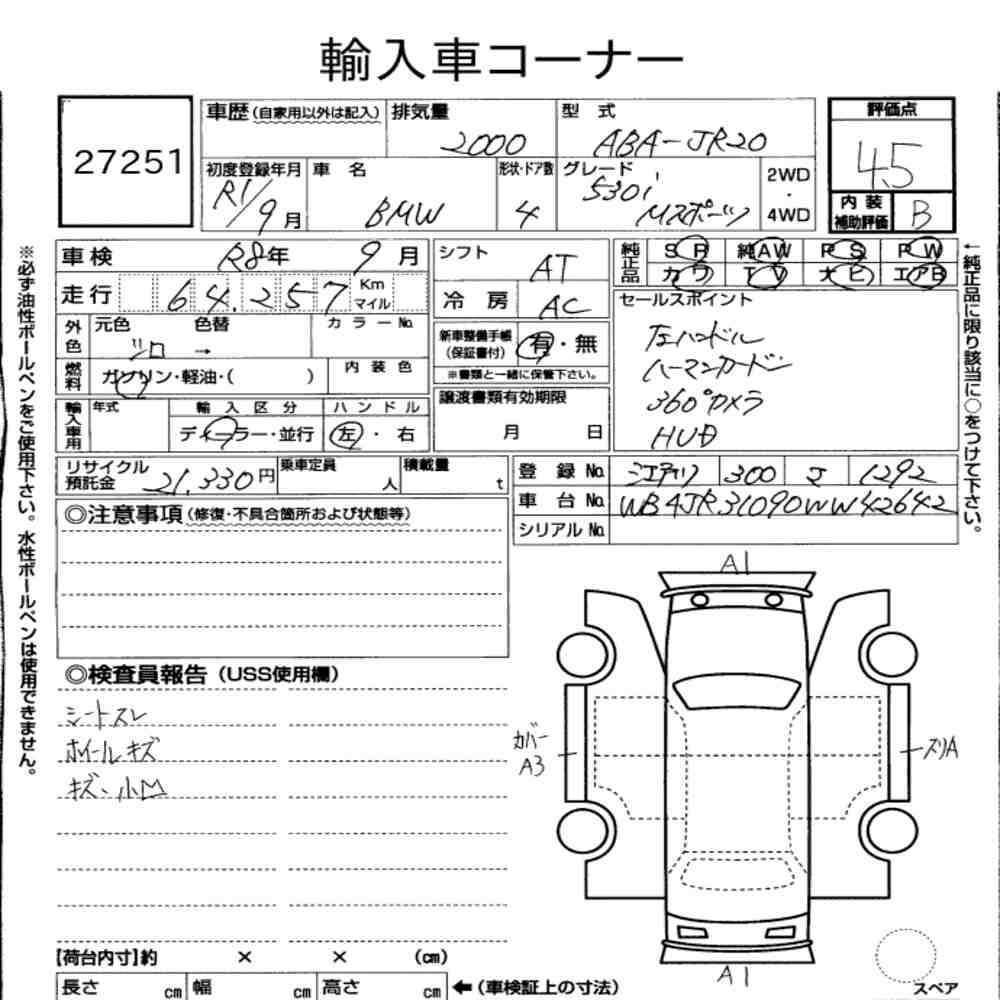 輸入車コーナー
27251
車歴(自家用以外は記入) 排気量 2000 型式 ABA-JR20
評価点 4.5
初度登録年月 R1/9月 車名 BMW 形状・ドア数 4 グレード 530i Mスポーツ 2WD・4WD
内装補助評価 B
車検 R8年 9月
走行 64.257 Km マイル
シフト AT
冷房 AC
純正品 SR 純AW PS PW
カワ TV ナビ エアB
外色 元色 色替 カラーNo.
シロ →
燃料 ガソリン・軽油・( ) 内装色
新車整備手帳(保証書付) 有・無
※書類と一緒に保管下さい。
輸入車用 年式 輸入区分 ハンドル
ディーラー・並行 左・右
譲渡書類有効期限
月 日
セールスポイント
左ハンドル
ハーマンカードン
360°カメラ
HUD
リサイクル預託金 21.330円 乗車定員 人 積載量 t
登録No. 300 1292
車台No. WB4JR31090WW42642
シリアルNo.
◎注意事項(修復・不具合箇所および状態等)
◎検査員報告(USS使用欄)
シートスレ
ホイールキズ
キズ、小凹
A1
カバー
A3
スリA
A1
スペア
【荷台内寸】約 × × (cm)
長さ cm 幅 cm 高さ cm ←(車検証上の寸法)
※必ず油性ボールペンをご使用下さい。水性ボールペンは使用できません。
←純正品に限り該当に○をつけて下さい。